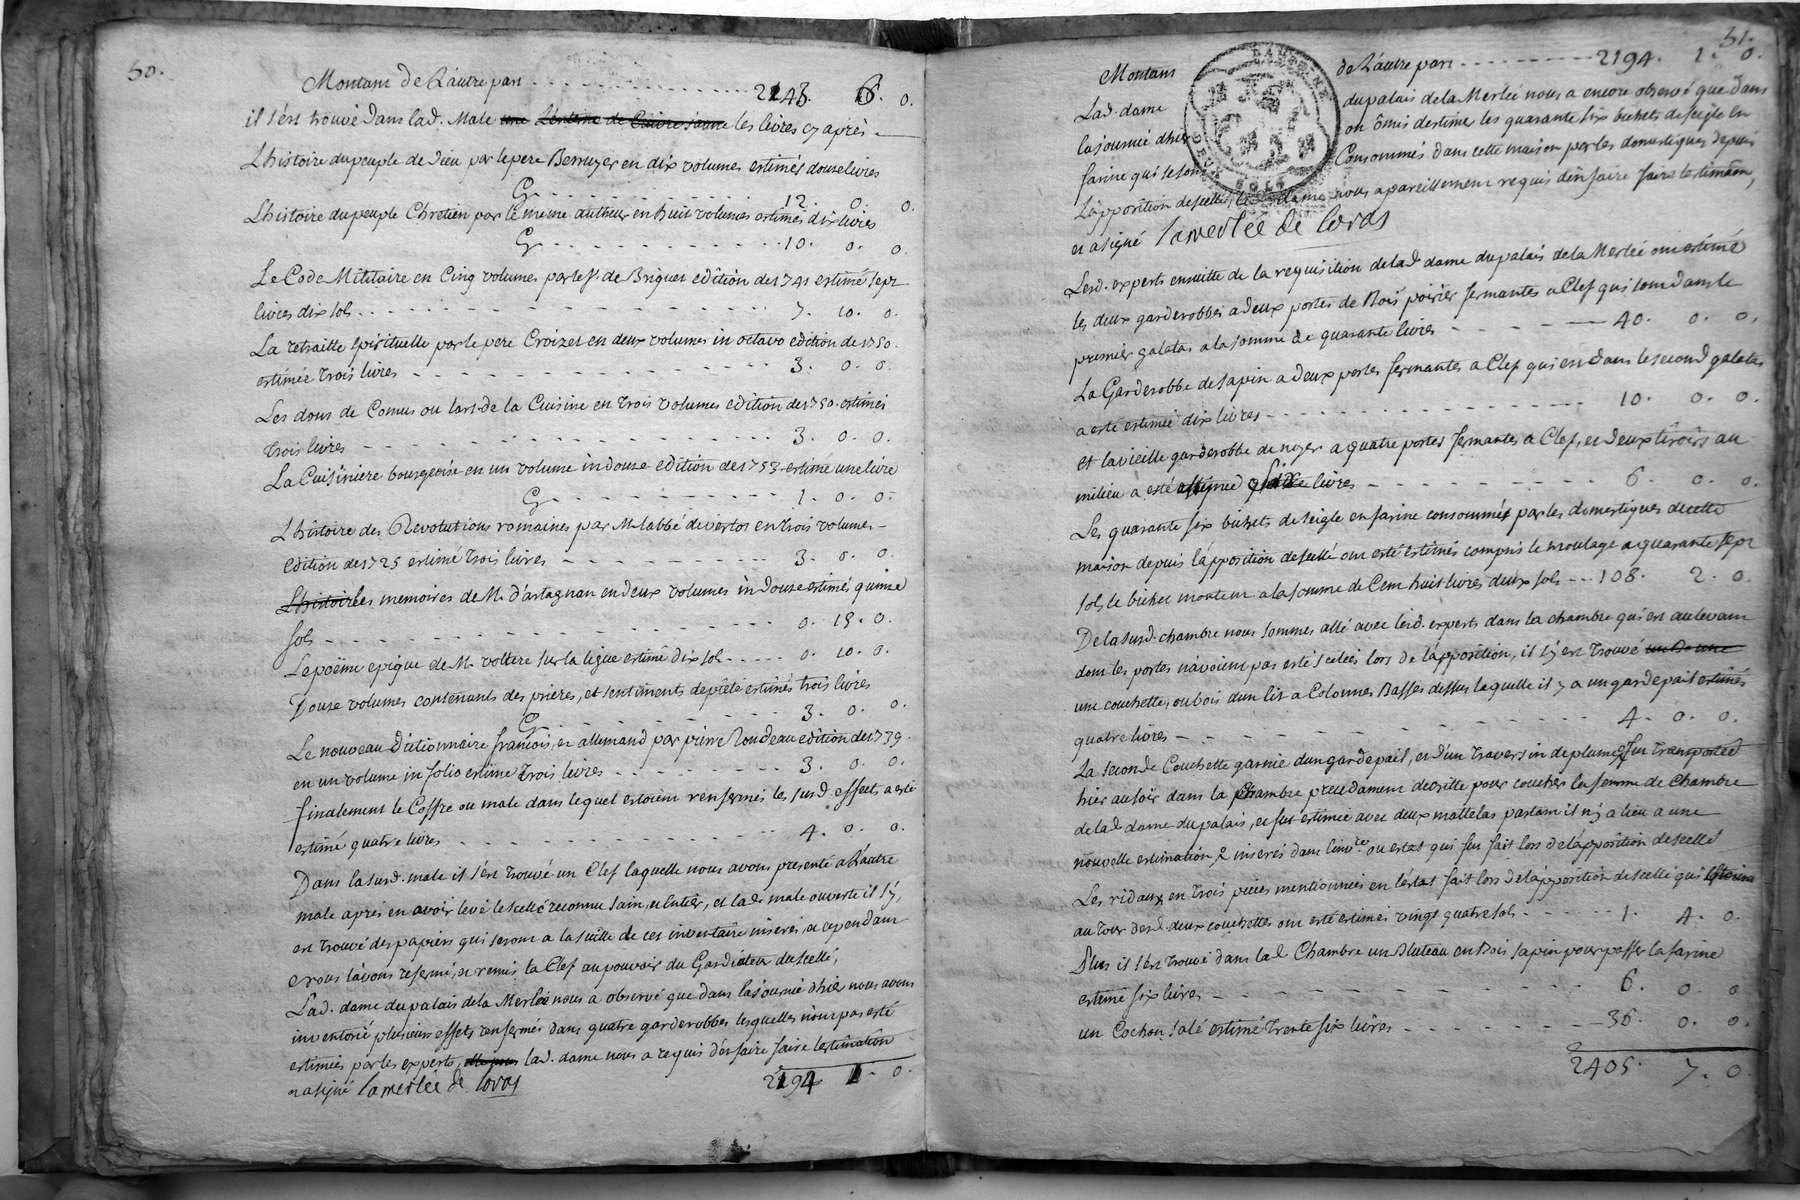 50.
Montant de L'autre part . . . . . . . . . . 2145. 6. 0.
il s'est trouvé dans lad. Male une Lenterne de Cuivre jaune les livres cy après
L'histoire du peuple de Dieu par le pere Berruyer en dix volumes estimés douse livres
Cy . . . . . . . . . . 12. 0. 0.
L'histoire du peuple Chretien par le même autheur en huit volumes estimés dix livres
Cy . . . . . . . . . . 10. 0. 0
Le Code Militaire en Cinq volumes par le Sr. de Briquet edition de 1741 estimé sept
livres dix sols . . . . . . . . . . 7. 10. 0.
La retraitte spirituelle par le pere Croizet en deux volumes in octavo edition de 1750.
estimée trois livres . . . . . . . . . . 3. 0. 0.
Les dons de Comus ou l'art de la Cuisine en trois volumes edition de 1750. estimés
trois livres . . . . . . . . . . 3. 0. 0.
La Cuisiniere bourgeoise en un volume in douse edition de 1753 estimé une livre
Cy . . . . . . . . . . 1. 0. 0.
L'histoire des Revolutions romaines par M. l'abbé de vertos en trois volumes
edition de 1725 estimé trois livres . . . . . . . . . . 3. 0. 0.
L'histoire les memoires de M. d'artagnan en deux volumes in douse estimés quinse
sols . . . . . . . . . . 0. 15. 0.
Le poëme epique de M. voltere sur la ligue estimé dix sols . . . . 0. 10. 0.
Douse volumes contenants des prières, et sentiments de piété estimés trois livres
Cy . . . . . . . . . . 3. 0. 0.
Le nouveau dictionnaire françois, et allemand par pierre Rondeau edition de 1739.
en un volume in folio estimé trois livres . . . . . . . . . . 3. 0. 0.
finalement le Coffre ou male dans lequel estoient renfermés les susd. effects a esté
estimé quatre livres . . . . . . . . . . 4. 0. 0.
Dans la susd. male il s'est trouvé un Clef laquelle nous avons presenté a L'autre
male après en avoir levé le scellé reconnu sain, et entier, et lad. male ouverte il s'y,
est trouvé des papiers qui seront a la suitte de cet inventaire inserés et cependant
nous l'avons refermé, et remis la Clef au pouvoir du Gardiateur du scellé,
Lad. dame du palais de la Merlée nous a observé que dans la journée d'hier nous avons
inventorié plusieurs effets renfermés dans quatre garderobbes lesquelles n'ont pas esté
estimées par les experts, lad. dame nous a requis d'en faire faire l'estimation
et a signé lamerlée de loras
2194 1. 0.
51.
Montant de L'autre part . . . . . . . . . . 2194. 1. 0.
Lad. dame du palais de la Merlée nous a encore observé que dans
la journée d'hier on a ômis d'estimer les quarante six bichets de seigle en
farine qui se sont Consommés dans cette maison par les domestiques depuis
l'apposition du scellé, lad. dame nous a pareillement requis d'en faire faire l'estimaõn,
et a signé lamerlée de loras
Lesd. experts ensuitte de la requisition de lad. dame du palais de la Merlée ont estimé
les deux garderobbes a deux portes de Bois poirier fermantes a Clef qui sont dans le
premier galatas a la somme de quarante livres . . . . . 40. 0. 0.
La Garderobbe de sapin a deux portes fermantes a Clef qui est dans le second galatas
a esté estimée dix livres . . . . . . . . . . 10. 0. 0.
et la vieille garderobbe de noyer a quatre portes fermantes a Clef, et deux tiroirs au
milieu a esté estimée six livres . . . . . . . . . . 6. 0. 0.
Les quarante six bichets de seigle en farine consommés par les domestiques de cette
maison depuis l'apposition de scellé ont esté estimés compris le moulage a quarante sept
sols le bichet montent a la somme de Cent huit livres deux sols . . . 108. 2. 0.
De la susd. chambre nous sommes allé avec lesd. experts dans la chambre qui est au levant
dont les portes n'avoient pas esté scelées lors de l'apposition, il s'y est trouvé
une couchette, ou bois d'un lit a Colonnes Basses dessus laquelle il y a un gardepail estimés
quatre livres . . . . . . . . . . 4. 0. 0.
La seconde Couchette garnie d'un gardepail, et d'un traversin de plumes fut transportée
hier au soir dans la Chambre precedament decritte pour coucher la femme de chambre
de lad. dame du palais, et fut estimée avec deux mattelas partant il n'y a lieu a une
nouvelle estimation inserés dans l'invre. ou estat qui fut fait lors de l'apposition de scellé
Les rideaux en trois pièces mentionnées en l'estat fait lors de l'apposition de scellé qui estoient
autour desd. deux couchettes ont esté estimés vingt quatre sols . . . . . 1. 4. 0.
Plus il s'est trouvé dans lad. Chambre un Bluteau en Bois sapin pour passer la farine
estimé six livres . . . . . . . . . . 6. 0. 0
un Cochon salé estimé trente six livres . . . . . . . . . . 36. 0. 0.
2405. 7. 0.